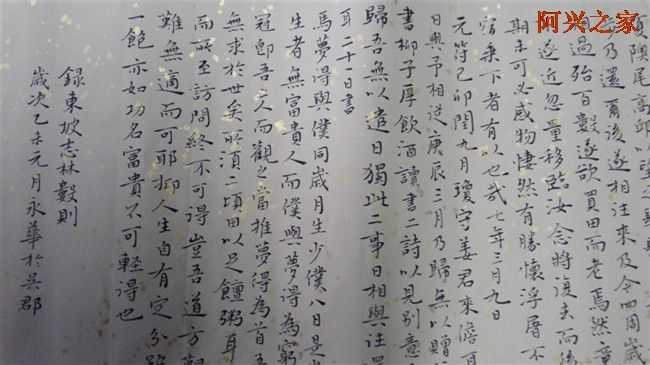 阿兴之家
隩尾高邱以望之
乃還爾後遂相往來及今四周歲
相過殆百數遂欲買田而老焉然竟
遂近忽量移臨汝念將復去而後
期未可必感物悽然有勝懷浮屠不
宿桑下者有以也哉七年三月九日
元符己卯閏九月瓊守姜君來儋耳
日與予相從庚辰三月乃歸無以贈
書柳子厚飲酒讀書二詩以見別意
歸吾無以遣日獨此二事日相與往還
耳二十日書
馬夢得與僕同歲月生少僕八日是
生者無富貴人而僕與夢得為窮
冠即吾二人而觀之當推夢得為首吾
無求於世矣所須二頃田以足饘粥耳
而所至訪問終不可得豈吾道方艱
難無適而可耶抑人生自有定分雖
一飽亦如功名富貴不可輕得也
録東坡志林數則
歲次乙未元月永華於吳郡